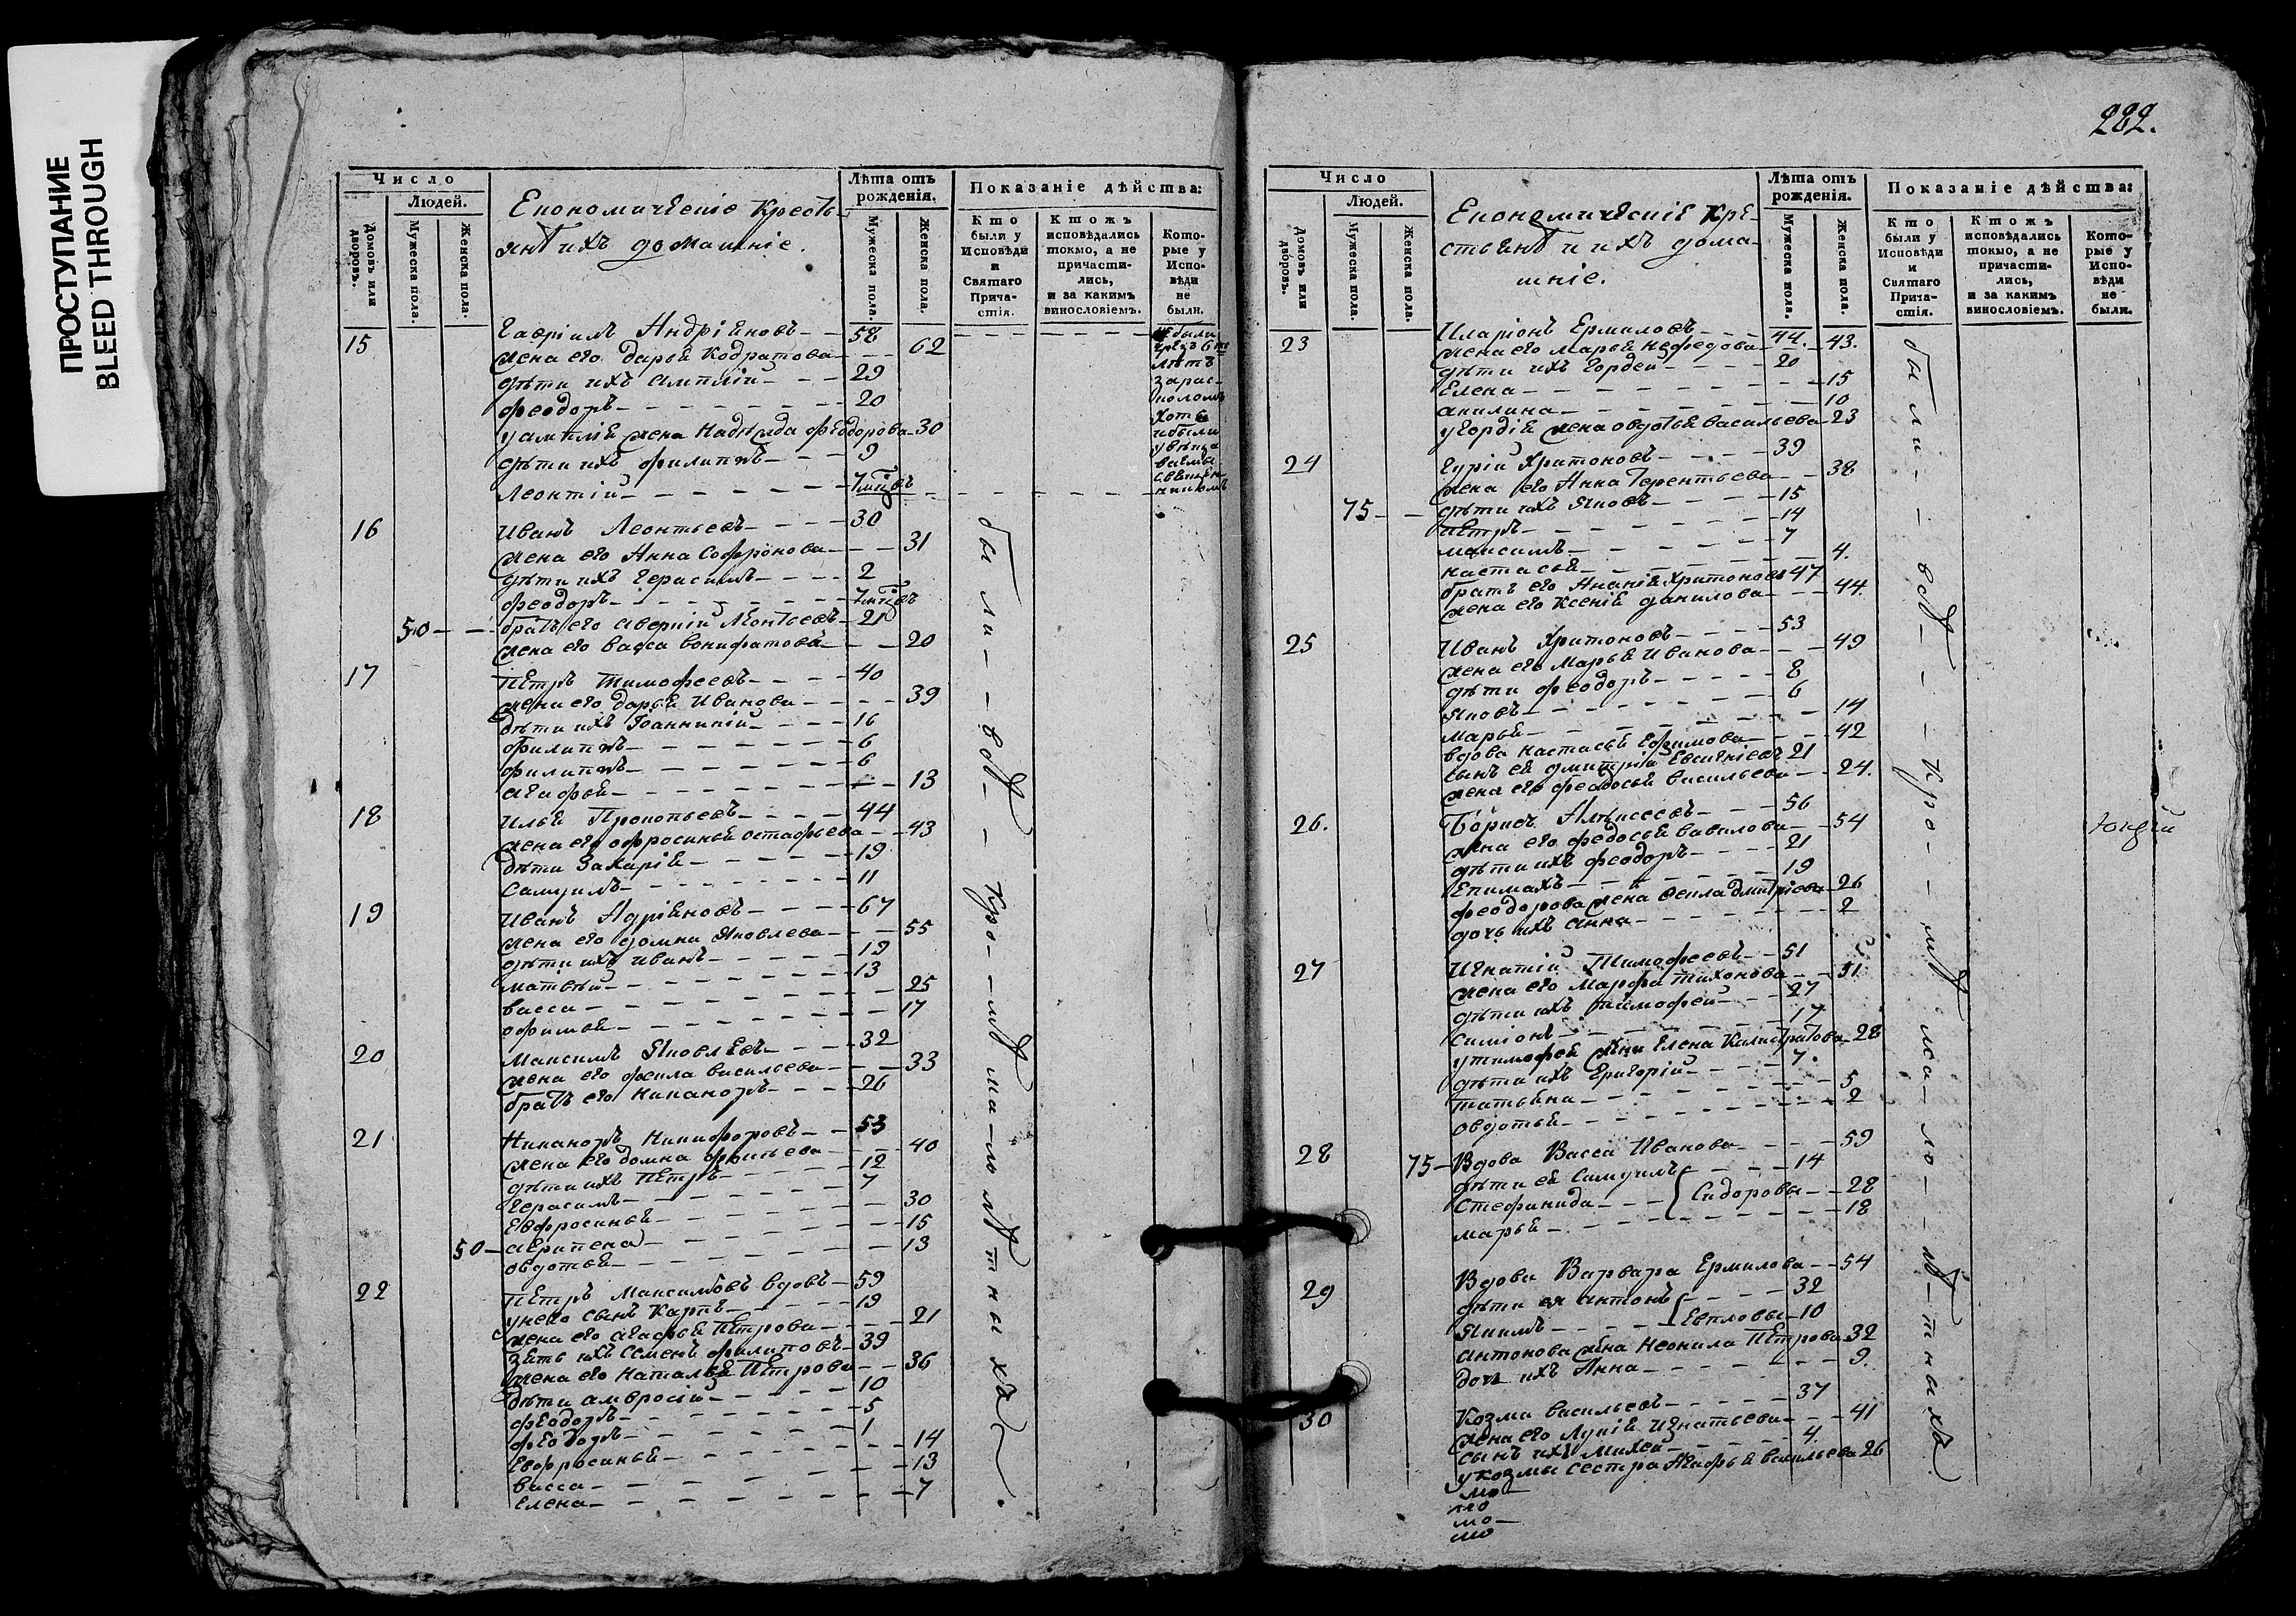 ПРОСТУПАНИЕ
BLEED THROUGH
Число
Людей.
Домовъ или дворовъ.
Мужеска пола.
Женска пола.
Економическіе Кресть-
янѣ ихъ домашніе.
Лѣта отъ рожденія.
Мужеска пола.
Женска пола.
Показаніе дѣйства:
Кто были у Исповѣди и Святаго Прича-стія.
Ктожъ исповѣдались токмо, а не причасти-лись, и за какимъ винословіемъ.
Кото-рые у Испо-вѣди не были.
15 Гавріилъ Андріяновъ 58
жена его дарья Кодратова 62
дѣти ихъ Ампілій 29
феодоръ 20
у ампілія жена Надежда феодорова 30
дѣти ихъ филиппъ 9
Леонтій 7 мцовъ
16 Иванъ Леонтьевъ 30
жена его Анна Софронова 31
дѣти ихъ Герасимъ 2
феодоръ 7 мцовъ
50 братъ его аверкій Леонтьевъ 21
жена его васса вонифатова 20
17 Петръ Тимофеевъ 40
жена его дарья Иванова 39
дѣти ихъ Іоанникій 16
филиппъ 6
филиппъ 6
агафья 13
18 Илья Прокопьевъ 44
жена его офросинья остафьева 43
дѣти Захарія 19
Самуилъ 11
19 Иванъ Адріяновъ 67
жена его домна Яковлева 55
дѣти ихъ иванъ 19
матвѣй 13
васса 25
офимья 17
20 Максимъ Яковлевъ 32
жена его фекла васильева 33
братъ его никаноръ 26
21 Никаноръ Никифоровъ 53
жена его домна 40
дѣти ихъ Петръ 12
Герасимъ 7
Евфросинья 30
50 агрипена 15
овдотья 13
22 Петръ Максимовъ вдовъ 59
у него сынъ Карпъ 19
жена его агафья Петрова 21
зять ихъ семенъ филиповъ 39
жена его Наталья Петрова 36
дѣти амвросій 10
феодоръ 5
феодоръ 1
Евфросинья 14
васса 13
Елена 7
были всѣ кромѣ малолѣтныхъ
небыли
лѣтъ
зарас-
коломъ
хотя
и были
увѣща
ваемы
священ
никомъ
222.
Число
Людей.
Домовъ или дворовъ.
Мужеска пола.
Женска пола.
Економическіе кре-
стьянѣ и ихъ дома-
шніе.
Лѣта отъ рожденія.
Мужеска пола.
Женска пола.
Показаніе дѣйства:
Кто были у Исповѣди и Святаго Прича-стія.
Ктожъ исповѣдались токмо, а не причасти-лись, и за какимъ винословіемъ.
Кото-рые у Испо-вѣди не были.
23 Иларіонъ Ермиловъ 44.
жена его марья нефедова 43.
дѣти ихъ Гордей 20
Елена 15
акилина 10
у гордія жена овдотья васильева 23
24 Гурій Хритоновъ 39
жена его Анна Терентьева 38
75 дѣти ихъ Яковъ 15
Петръ 14
максимъ 7
настасья 4.
братъ его Ананія Хритоновъ 47
жена его ксенія данилова 44.
25 Иванъ Хритоновъ 53
жена его Марья Иванова 49
дѣти феодоръ 8
Яковъ 6
марья 14
вдова настасья Ефимова 42
сынъ ея дмитрій Евсигніевъ 21
жена его феодосья васильева 24.
26. Борисъ Алексеевъ 56
жена его федосья вавилова 54
дѣти ихъ феодоръ 21
Епимахъ 19
феодорова жена Фекла дмитріева 26
дочь ихъ анна 2
27 Игнатій Тимофеевъ 51
жена его Марфа тихонова 51
дѣти ихъ тимофей 27
Симіонъ 17
у тимофея жена Елена Калистратова 28
дѣти ихъ Григорій 7
татьяна 5
овдотья 2
28 75 Вдова Васса Иванова 59
дѣти ея Самуилъ 14
Стефанида Сидоровы 28
марья 18
29 Вдова Варвара Ермилова 54
дѣти ея антонъ 32
Якимъ Евпловы 10
антонова жена Неонила Петрова 32
дочь ихъ Анна 9.
30 Козма васильевъ 37
жена его Лукія Игнатьева 41
сынъ ихъ михей 4.
у козмы сестра Агафья васильева 26
мо
мо
мо
мо
были всѣ кромѣ малолѣтныхъ